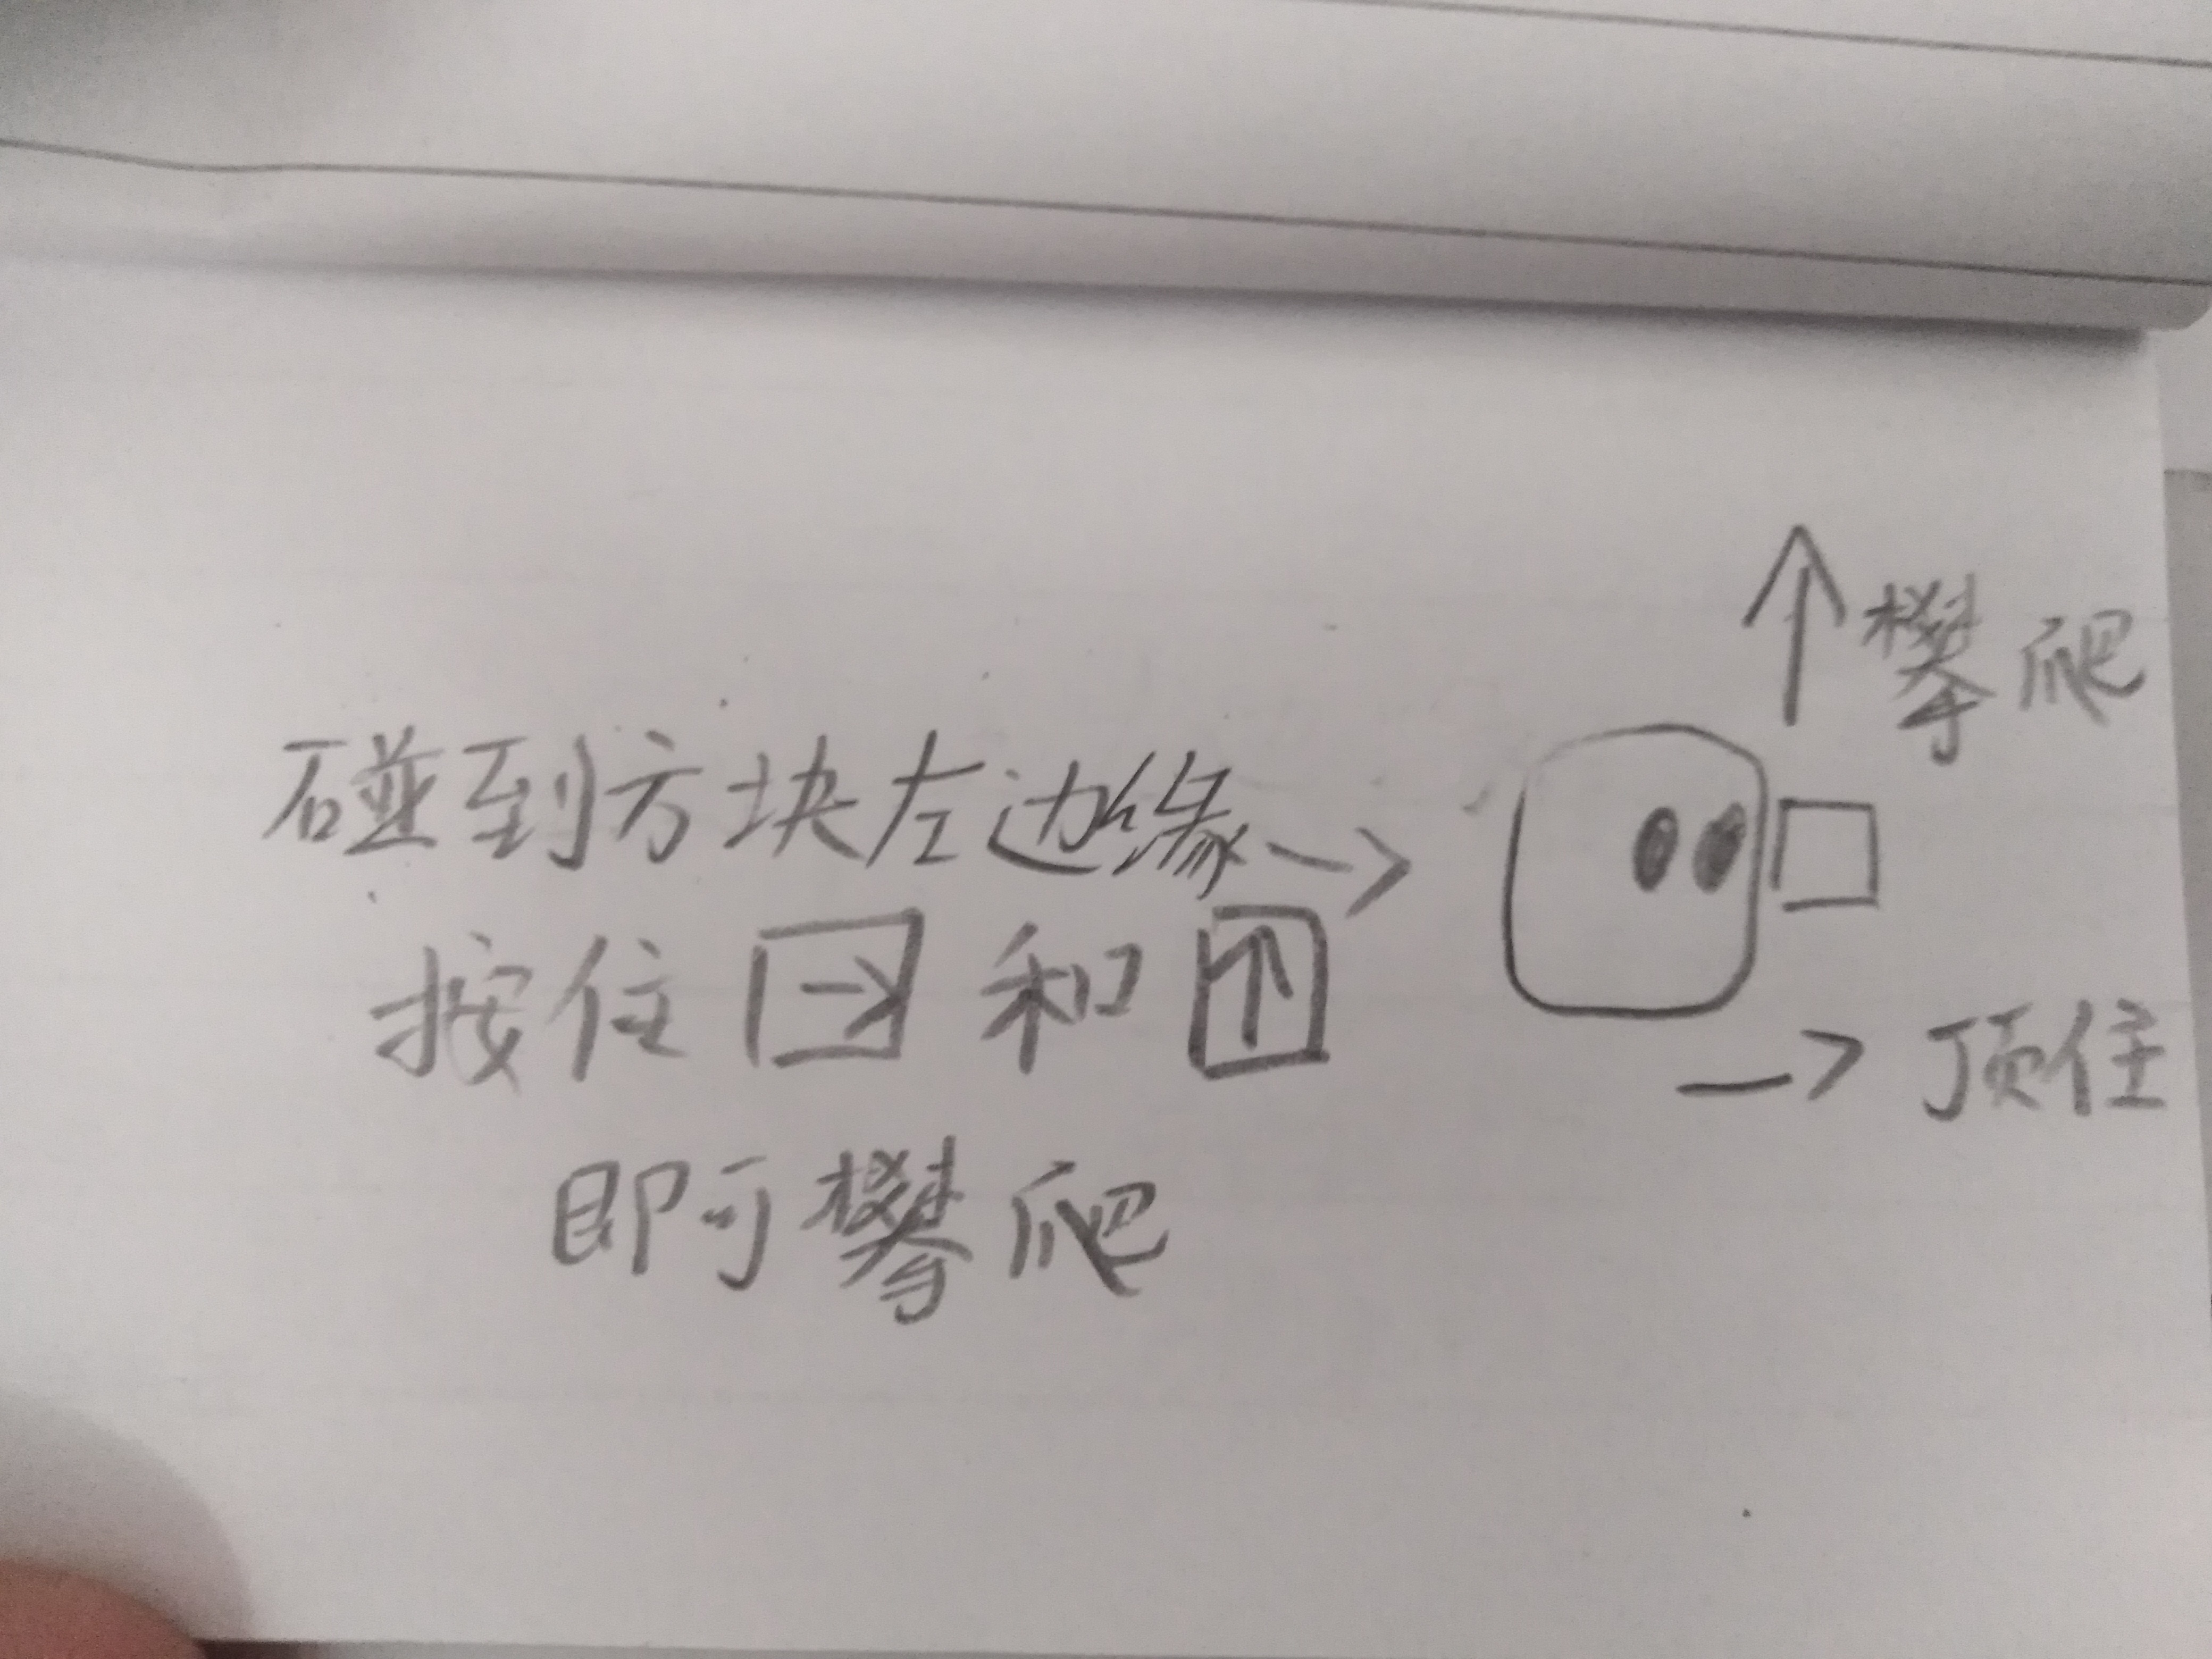 碰到方块左边缘→
按住→和↑
即可攀爬
↑攀爬
→顶住